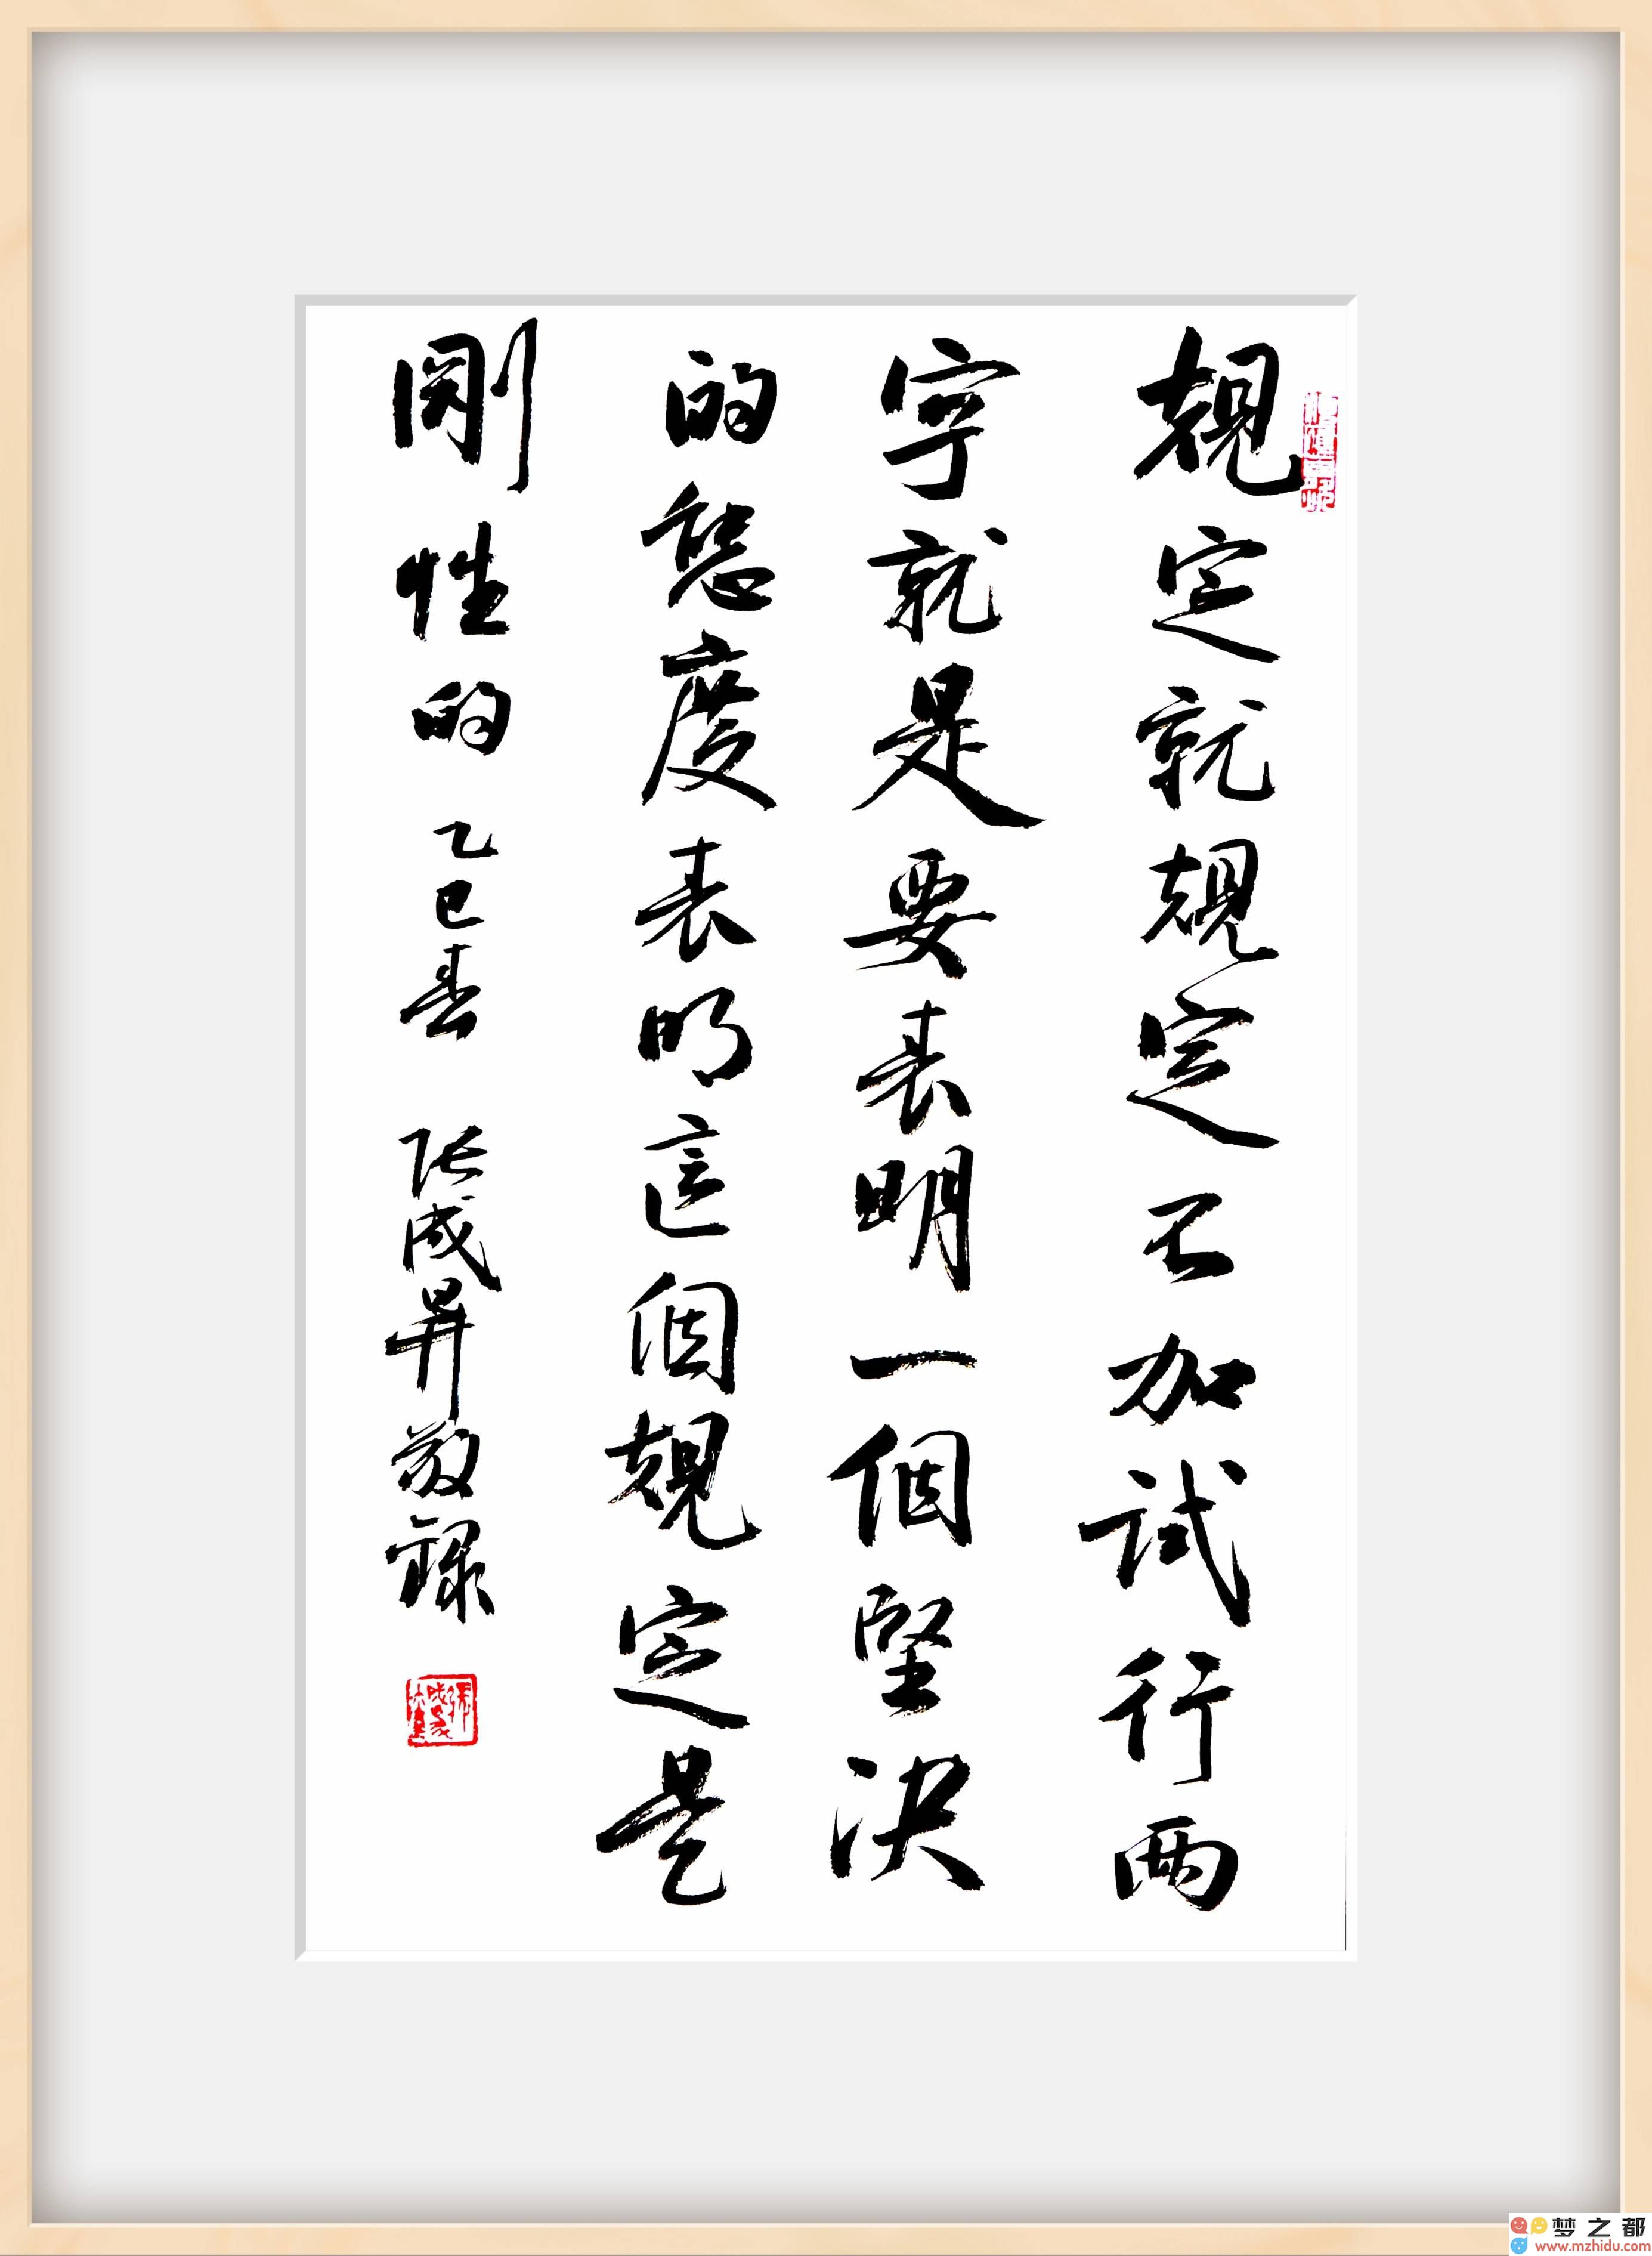 規定就規定不加試行兩
字就是要表明一個堅決
的態度表明這個規定是
剛性的 乙巳春 張成昇敬錄
梦之都
www.mzhidu.com